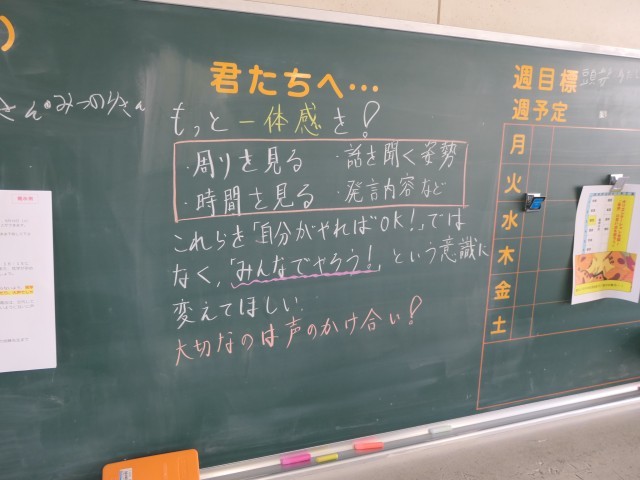 さん・みつのりさん
君たちへ…
もっと一体感を!
・周りを見る ・話を聞く姿勢
・時間を見る ・発言内容など
これらを「自分がやればOK!」では
なく、「みんなでやろう!」という意識に
変えてほしい
大切なのは声のかけ合い!
週目標
週予定
月
火
水
木
金
土